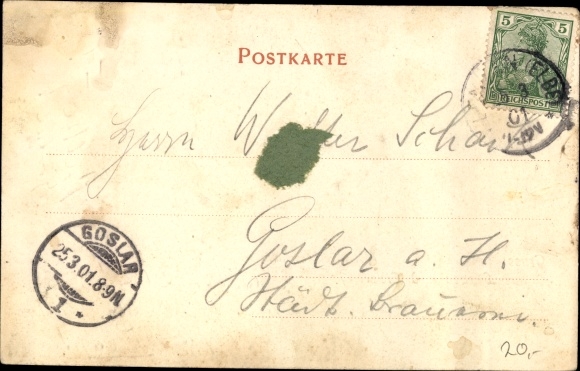 POSTKARTE
5 5
REICHSPOST
01
Herrn Walter
Goslar a. H.
Städt. Brauerei.
GOSLAR
25.3.01.8-9N.
1 *
20,-